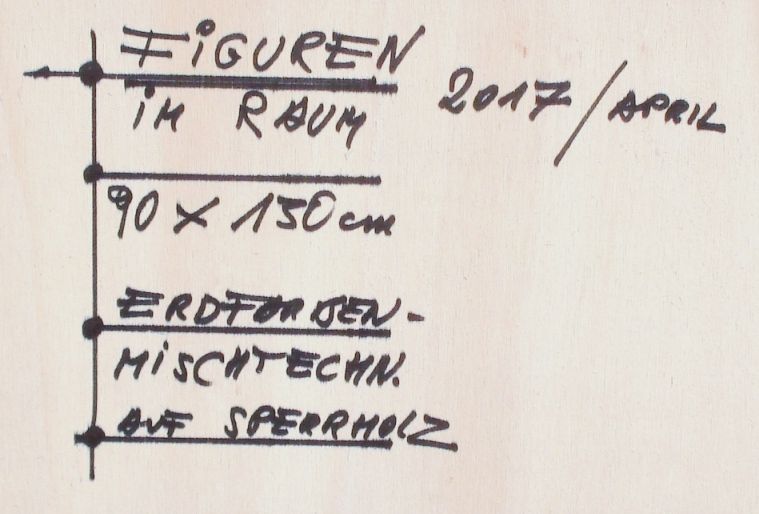 FiGUREN
iM RAUM
2017/APRIL
90 x 130 cm
ERDFARBEN-
MiSCHTECHN.
AUF SPERRHOLZ